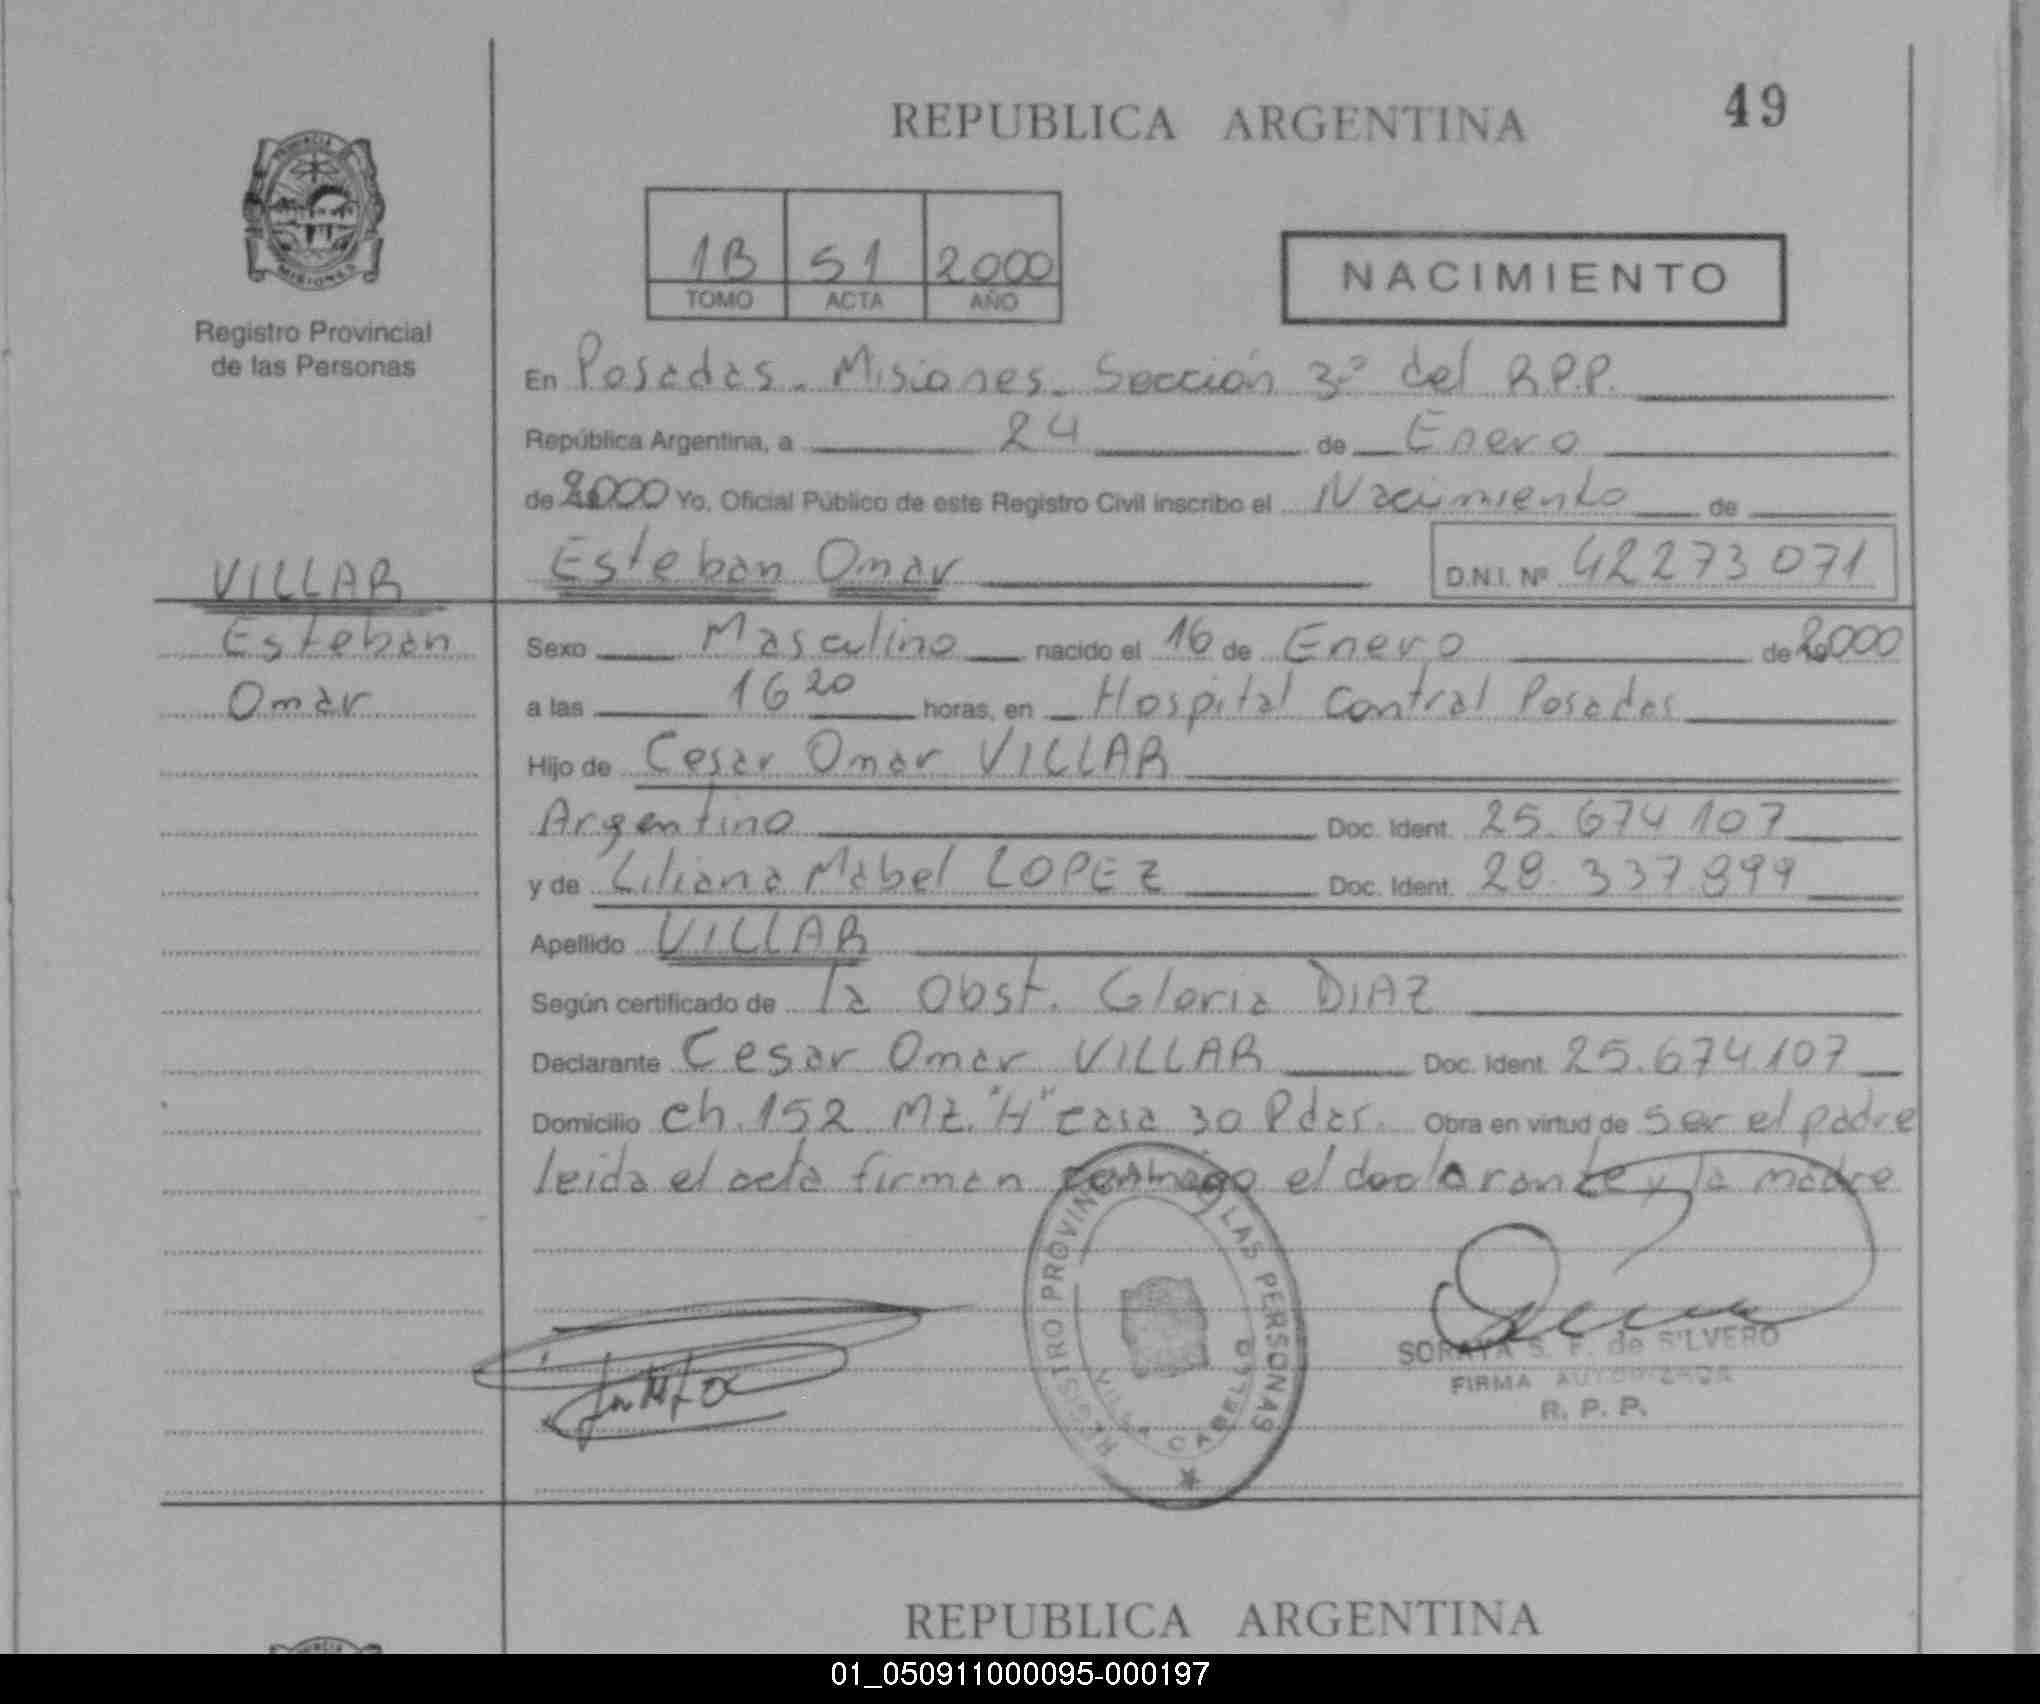 REPUBLICA ARGENTINA
49
PROVINCIA
MISIONES
Registro Provincial
de las Personas
1B 51 2000
TOMO ACTA AÑO
NACIMIENTO
En Posadas - Misiones - Sección 3ª del R.P.P.
República Argentina, a 24 de Enero
de 2000 Yo, Oficial Público de este Registro Civil inscribo el Nacimiento de
VILLAR
Esteban
Omar
Esteban Omar D.N.I. Nº 42273071
Sexo Masculino nacido el 16 de Enero de 2000
a las 16 20 horas, en Hospital Central Posadas
Hijo de Cesar Omar VILLAR
Argentino Doc. Ident. 25.674 107
y de Liliana Mabel LOPEZ Doc. Ident. 28.337.899
Apellido VILLAR
Según certificado de la Obst. Gloria DIAZ
Declarante Cesar Omar VILLAR Doc. Ident. 25.674.107
Domicilio ch. 152 Mz. "H" casa 30 Pdas. Obra en virtud de ser el padre
leida el acta firman conmigo el declarante y la madre
REGISTRO PROVINCIAL LAS PERSONAS
CABELLO
SORAYA S. F. de SILVERO
FIRMA AUTORIZADA
R. P. P.
REPUBLICA ARGENTINA
01_050911000095-000197